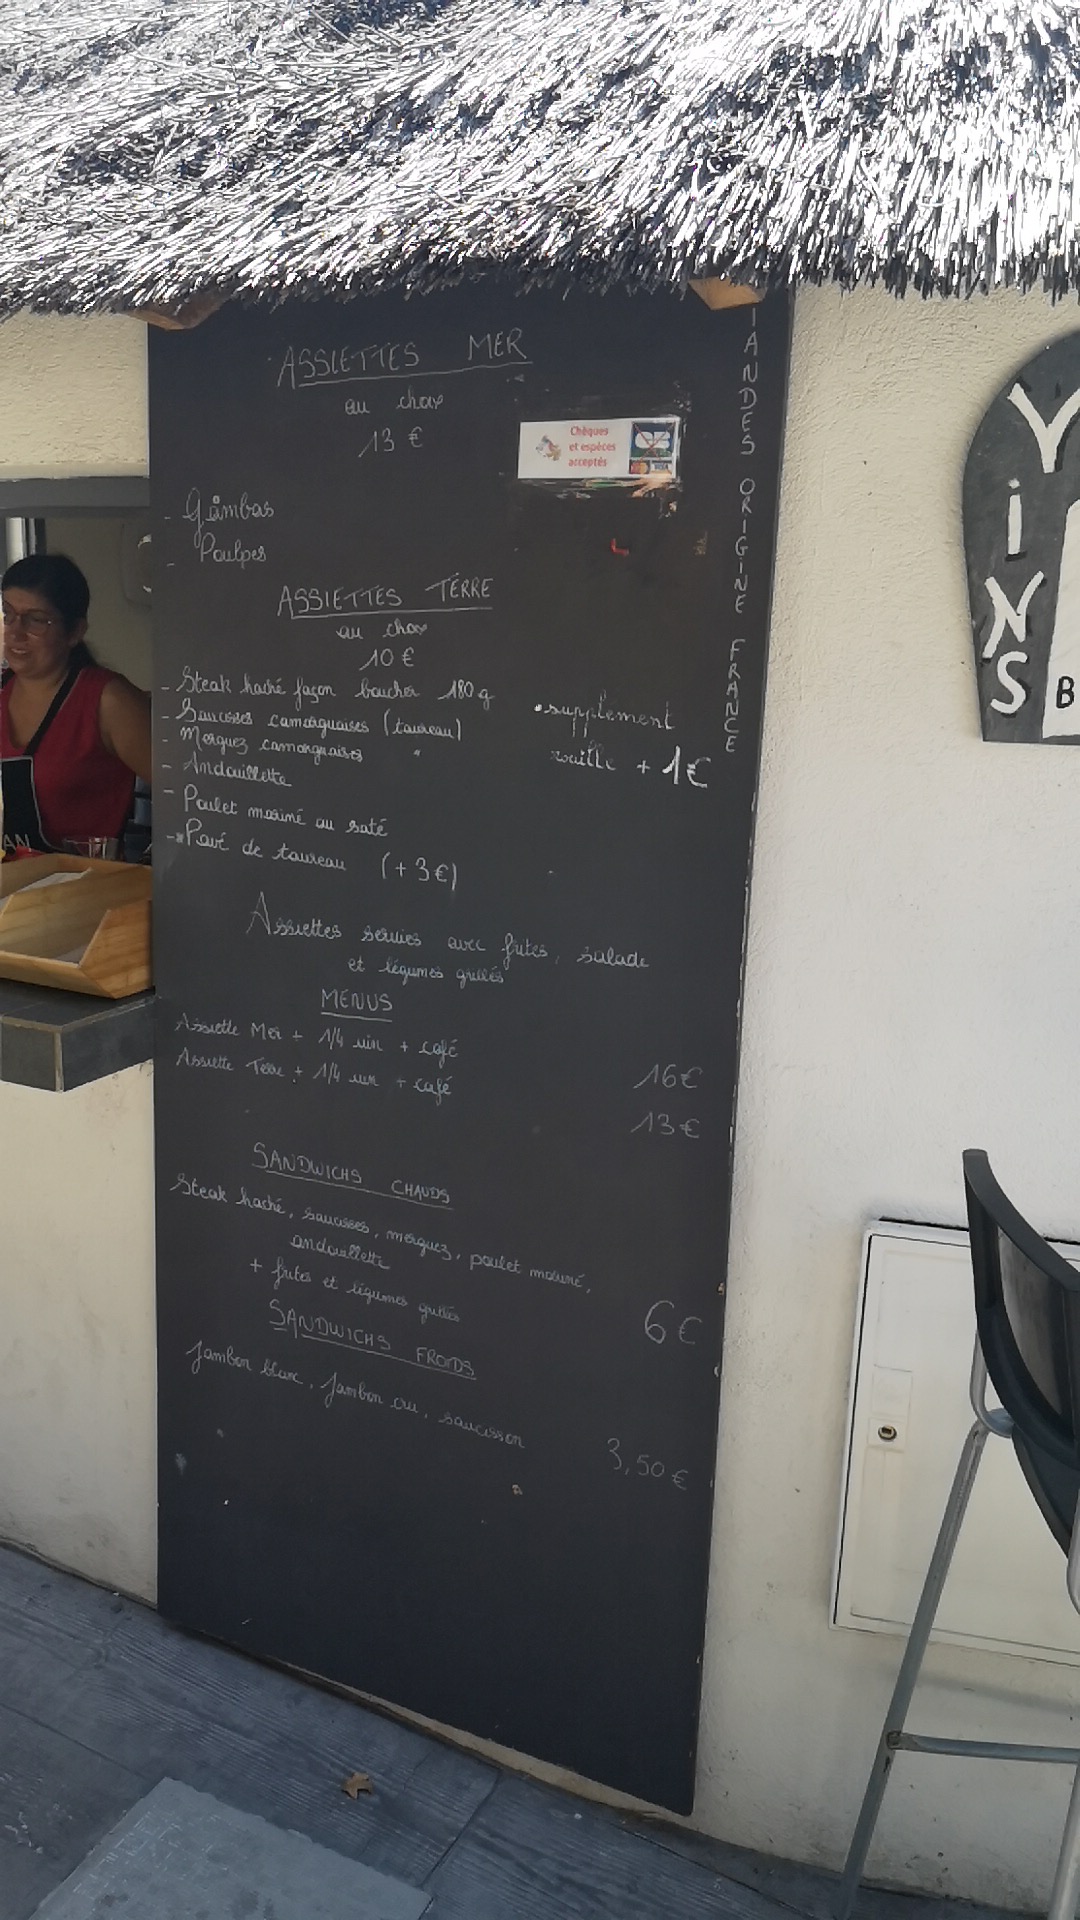 ASSIETTES MER
au choix
13 €
Chèques
et espèces
acceptés
VISA
- Gambas
- Poulpes
ASSIETTES TERRE
au choix
10 €
- Steak haché façon boucher 180 g
- Saucisses camarguaises (taureau)
- Merguez camarguaises "
- Andouillette
- Poulet mariné au saté
-*Pavé de taureau (+3€)
• supplément
rouille + 1€
Assiettes servies avec frites, salade
et légumes grillés
MENUS
Assiette Mer + 1/4 vin + café 16€
Assiette Terre + 1/4 vin + café 13€
SANDWICHS CHAUDS
Steak haché, saucisses, merguez, poulet mariné,
andouillette
+ frites et légumes grillés 6€
SANDWICHS FROIDS
Jambon blanc, Jambon cru, saucisson 3,50€
IANDES ORIGINE FRANCE
VINS
B
AN